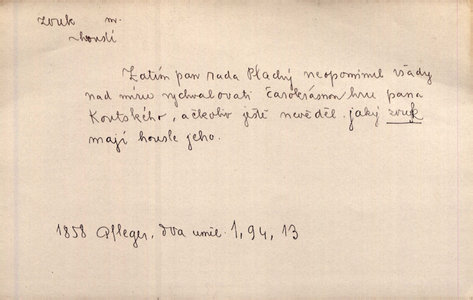 zvuk m.
~houslí
Zatím pan rada Plachý neopominul všady
nad míru vychvalovati čarokrásnou hru pana
Koutského, ačkoliv ještě nevěděl jaký zvuk
mají housle jeho.
1858 Pfleger, dva uměl. 1, 94, 13